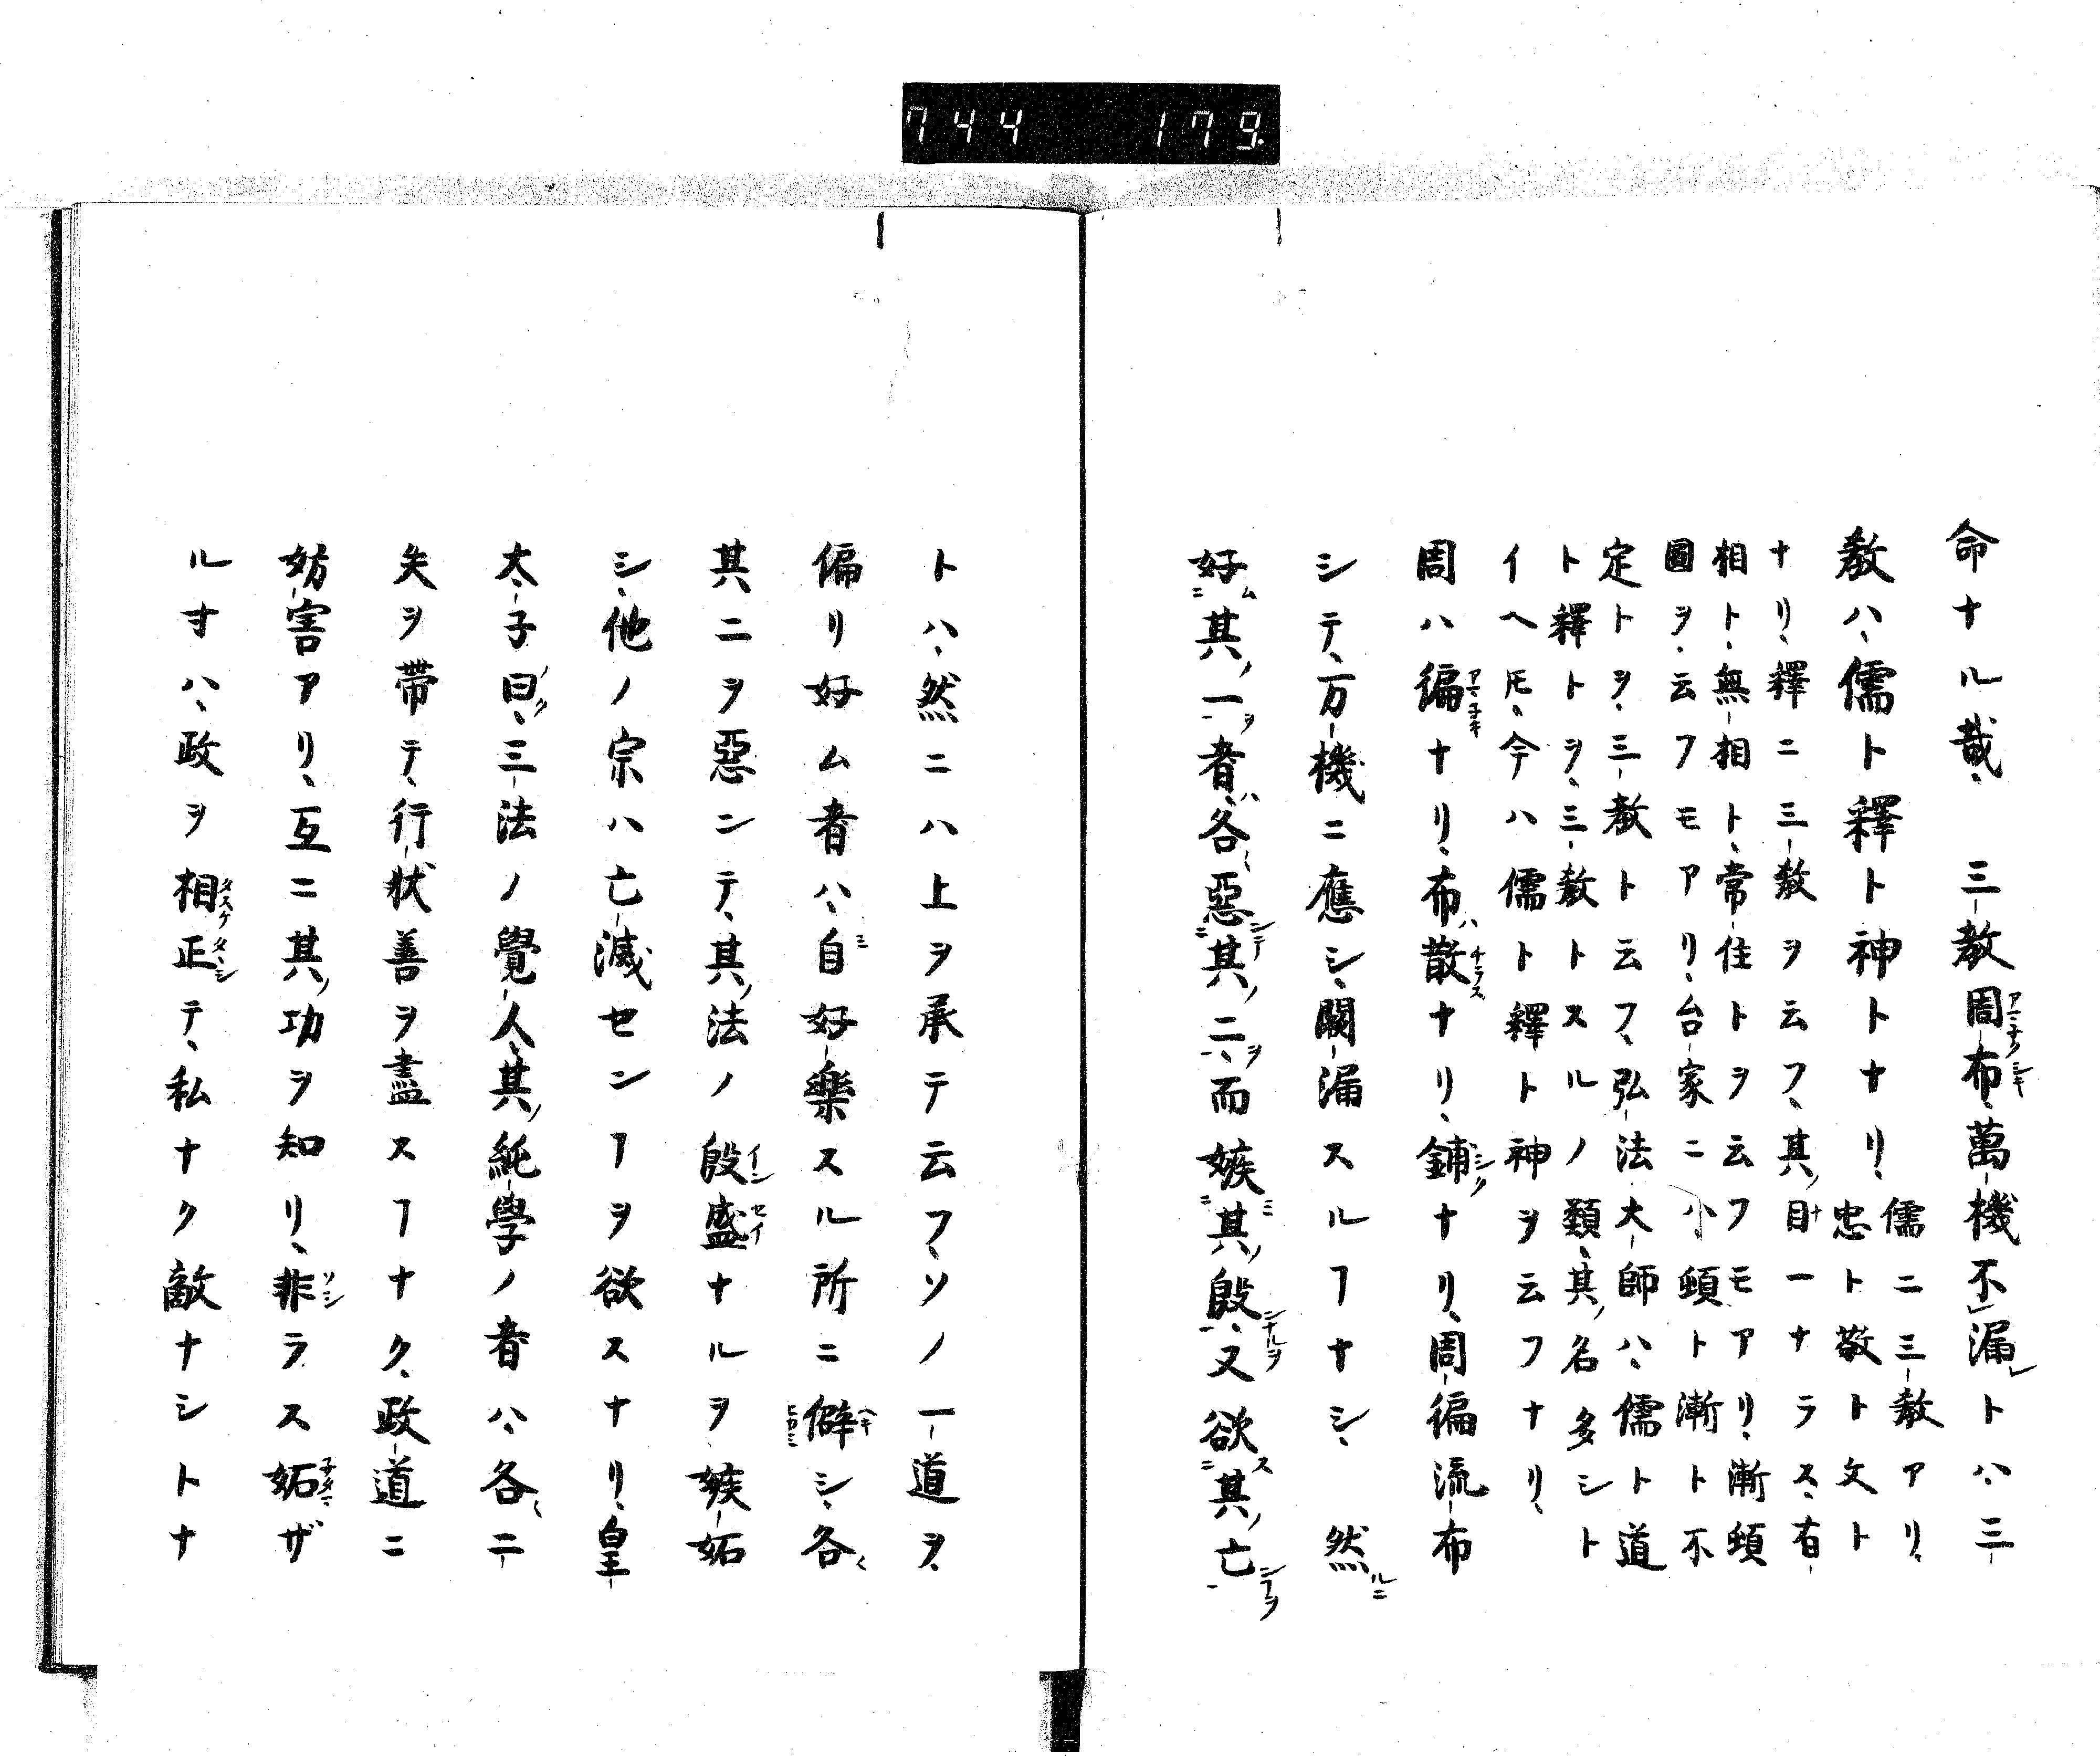 744 179
命ナル哉、三教周布、萬機不漏トハ、三
教ハ、儒ト釋ト神トナリ、儒ニ三教アリ、
忠ト敬ト文ト
ナリ、釋ニ三教ヲ云フ、其ノ目一ナラス、有
相ト、無相ト、常住トヲ云フモアリ、漸頓
圓ヲ、云フモアリ、台家ニハ頓ト漸ト不
定トヲ、三教ト云フ、弘法大師ハ、儒ト道
ト釋トヲ、三教トスルノ類、其ノ名多シト
イヘ𪜈、今ハ儒ト釋ト神ヲ云フナリ、
周ハ徧ナリ、布散ナリ、鋪ナリ、周徧流布
シテ、万機ニ應シ、闕漏スルヿナシ、然ルニ
好ムニ其ノ一ヲ者ハ、各〻惡ンテニ其ノ二ヲ、而嫉ミニ其ノ殷シナルヲ、又欲スニ其ノ亡シヿヲ
トハ、然ニハ上ヲ承テ云フ、ソノ一道ヲ、
偏リ好ム者ハ、自ミ好樂スル所ニ僻シ、各〻
其ニヲ惡ンテ、其ノ法ノ殷盛ナルヲ、嫉妬
シ、他ノ宗ハ亡滅センヿヲ欲スナリ、皇
太子曰ノク、三法ノ覺人、其ノ純學ノ者ハ、各〻二
失ヲ帶テ、行狀善ヲ盡スヿナク、政道ニ
妨害アリ、互ニ其ノ功ヲ知リ、非ラス妬ザ
ルオハ、政ヲ相正テ、私ナク敵ナシトナ